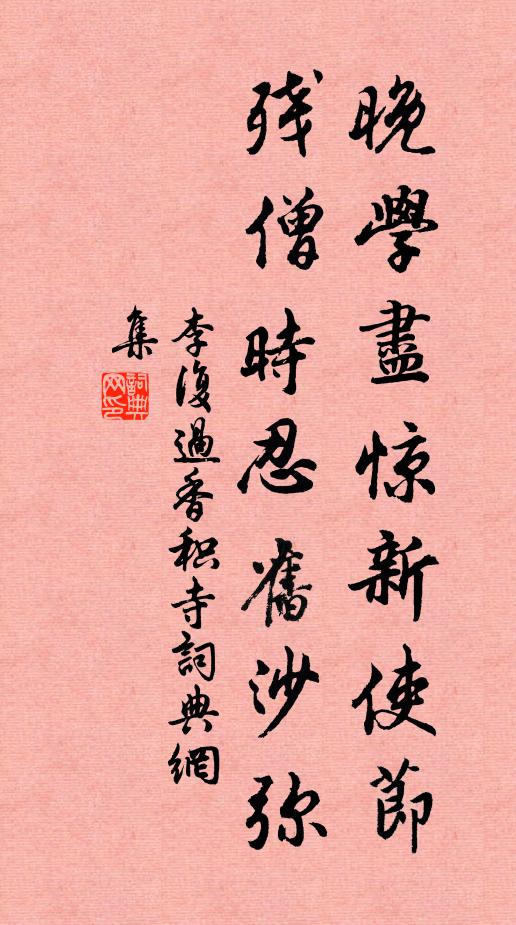 晚學盡惊新使節
殘僧時忍舊沙弥
李復過香积寺詞典網
集
詞典
网印